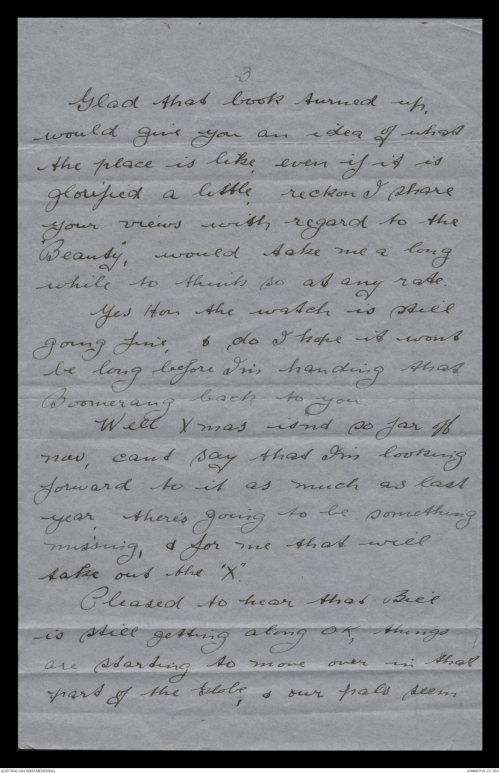 3
Glad that book turned up,
would give you an idea of what
the place is like, even if it is
glorified a little, reckon I share
your views with regard to the
"Beauty", would take me a long
while to think so at any rate.
Yes Hon the watch is still
going fine, & do I hope it wont
be long before I'm handing that
Boomerang back to you
Well Xmas isnt so far off
now, cant say that I'm looking
forward to it as much as last
year, there's going to be something
missing, & for me that will
take out the "X".
Pleased to hear that Bill
is still getting along OK, things
are starting to move over in that
part of the Globe, & our pals seem
AUSTRALIAN WAR MEMORIAL